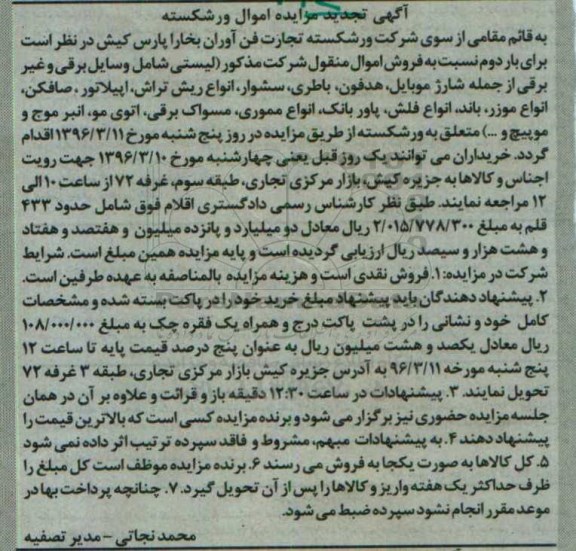 آگهی تجدید مزایده اموال ورشکسته
به قائم مقامی از سوی شرکت ورشکسته تجارت فن آوران بخارا پارس کیش در نظر است
برای بار دوم نسبت به فروش اموال منقول شرکت مذکور (لیستی شامل وسایل برقی و غیر
برقی از جمله شارژ موبایل، هدفون، باطری، سشوار، انواع ریش تراش، اپیلاتور، صافکن،
انواع موزر، باند، انواع فلش، پاور بانک، انواع مموری، مسواک برقی، اتوی مو، انبر موج و
موپیچ و ...) متعلق به ورشکسته از طریق مزایده در روز پنج شنبه مورخ ۱۳۹۶/۳/۱۱ اقدام
گردد. خریداران می توانند یک روز قبل یعنی چهارشنبه مورخ ۱۳۹۶/۳/۱۰ جهت رویت
اجناس و کالاها به جزیره کیش، بازار مرکزی تجاری، طبقه سوم، غرفه ۷۲ از ساعت ۱۰ الی
۱۲ مراجعه نمایند. طبق نظر کارشناس رسمی دادگستری اقلام فوق شامل حدود ۴۳۳
قلم به مبلغ ۲/۰۱۵/۷۷۸/۳۰۰ ریال معادل دو میلیارد و پانزده میلیون و هفتصد و هفتاد
و هشت هزار و سیصد ریال ارزیابی گردیده است و پایه مزایده همین مبلغ است. شرایط
شرکت در مزایده: ۱. فروش نقدی است و هزینه مزایده بالمناصفه به عهده طرفین است.
۲. پیشنهاد دهندگان باید پیشنهاد مبلغ خرید خود را در پاکت بسته شده و مشخصات
کامل خود و نشانی را در پشت پاکت درج و همراه یک فقره چک به مبلغ ۱۰۸/۰۰۰/۰۰۰
ریال معادل یکصد و هشت میلیون ریال به عنوان پنج درصد قیمت پایه تا ساعت ۱۲
پنج شنبه مورخه ۹۶/۳/۱۱ به آدرس جزیره کیش بازار مرکزی تجاری، طبقه ۳ غرفه ۷۲
تحویل نمایند. ۳. پیشنهادات در ساعت ۱۲:۳۰ دقیقه باز و قرائت و علاوه بر آن در همان
جلسه مزایده حضوری نیز برگزار می شود و برنده مزایده کسی است که بالاترین قیمت را
پیشنهاد دهند ۴. به پیشنهادات مبهم، مشروط و فاقد سپرده ترتیب اثر داده نمی شود
۵. کل کالاها به صورت یکجا به فروش می رسند ۶. برنده مزایده موظف است کل مبلغ را
ظرف حداکثر یک هفته واریز و کالاها را پس از آن تحویل گیرد. ۷. چنانچه پرداخت بها در
موعد مقرر انجام نشود سپرده ضبط می شود.
محمد نجاتی - مدیر تصفیه